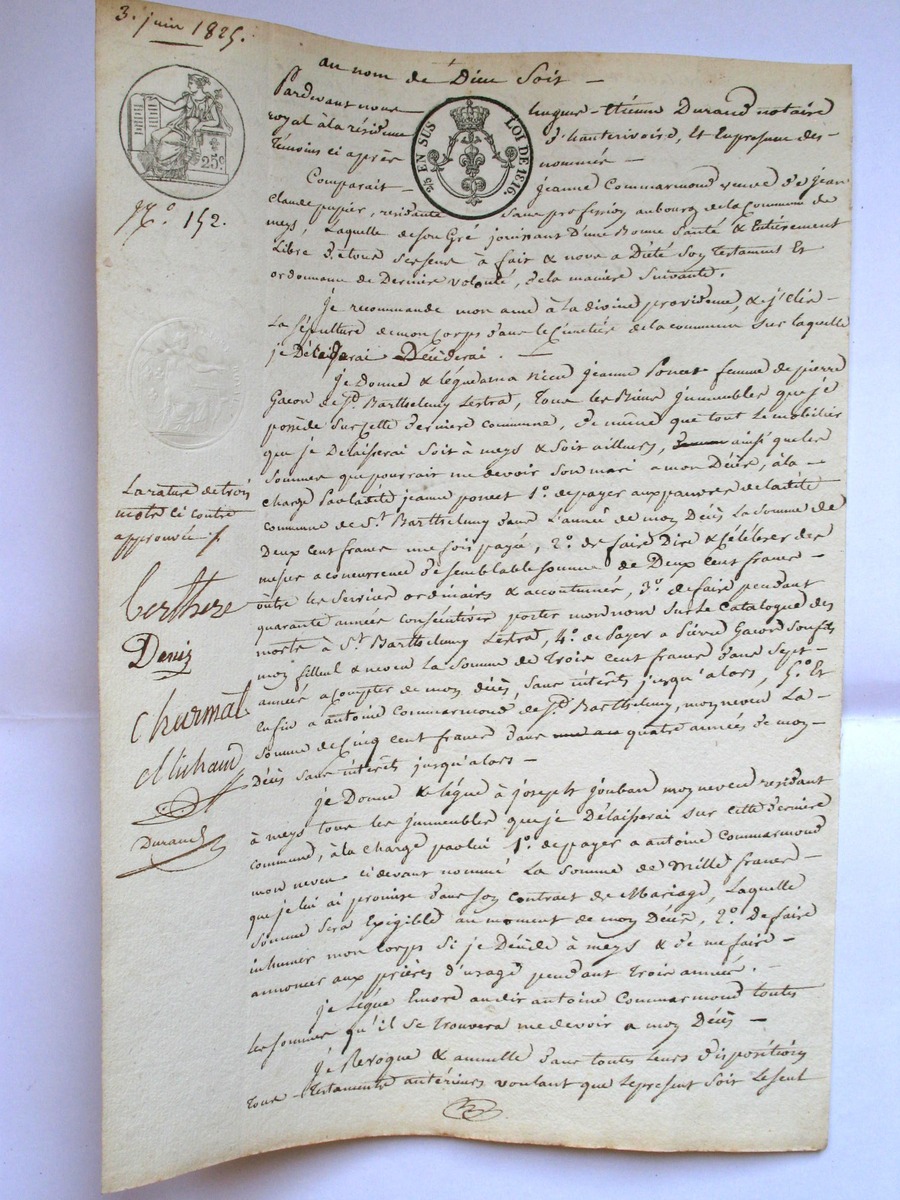 3. juin 1825.
25c
2/5 EN SUS LOI DE 1816.
No. 152.
au nom de Dieu Soit —
Pardevant nous hugues-étienne Durand notaire
royal à la résidence d'hauterivoire, et En presence des
témoins ci après nommés —
Comparait — jeanne Commarmond veuve de jean
claude pupier, residante sans profession au bourg de la Commune de
meys, Laquelle de son Gré jouissant d'une Bonne Santé & Entièrement
Libre de tous ses sens à fait & nous a Dicté Son Testament Et
ordonnance de Derniere volonté, de la manière Suivante.
je recommande mon ame à La divine providence, & j'Elis
La Sépulture de mon Corps dans le Cimetière de la commune Sur laquelle
je Décéderai. —
je donne & légue a ma niece jeanne Poncet femme de pierre
Gacon de St. Barthelemy Lestrat, Tous les Biens immeubles que je
possède Sur cette derniere commune, de même que tout le mobilier
que je Delaisserai Soit à meys & Soit ailleurs, ainsi que les
Sommes que pourrait me devoir Son mari a mon Décès, à la —
charge Par ladite jeanne poncet 1o. de payer aux pauvres de ladite
commune de St. Barthelemy dans L'année de mon Décès La Somme de
Deux cent francs une fois payée, 2o. de faire Dire & Célébrer des
messes a concurrence de semblable Somme de Deux cent francs —
outre les Services ordinaires & accoutumés, 3o. de faire pendant
quarante années consécutives porter mon nom Sur Le Catalogue des
morts à St. Barthelemy Lestrat, 4o. de Payer a Pierre Gacon Son fils
mon filleul & neveu La Somme de Trois cent francs dans Sept
années a compter de mon décès, Sans intérêts jusqu'alors, 5o. Et
Enfin a antoine Commarmond de St. Barthelemy, mon neveu La —
Somme de Cinq cent francs dans quatre années de mon —
Décès sans intérêts jusqu'alors —
je Donne & légue à joseph joubard mon neveu residant
à meys tous les immeubles que je Délaisserai Sur cette derniere
commune, à la charge par lui 1o. de payer a antoine Commarmond
mon neveu ci devant nommé La Somme de Mille francs —
que je lui ai promise dans Son contract de Mariage, Laquelle
Somme Sera Exigible au moment de mon Décès, 2o. De faire
inhumer mon Corps Si je Décède à meys & de me faire —
annoncer aux prières d'usage pendant Trois années.
je Légue Encore audit antoine Commarmond toutes
les sommes qu'il Se Trouvera me devoir a mon Décès —
je Revoque & annulle dans toutes leurs dispositions
Tous-Testaments antérieurs voulant que le present Soit le seul
La rature de trois
mots ci contre
approuvée
Berthere
Deniz
Charmat
Michaud
Durand